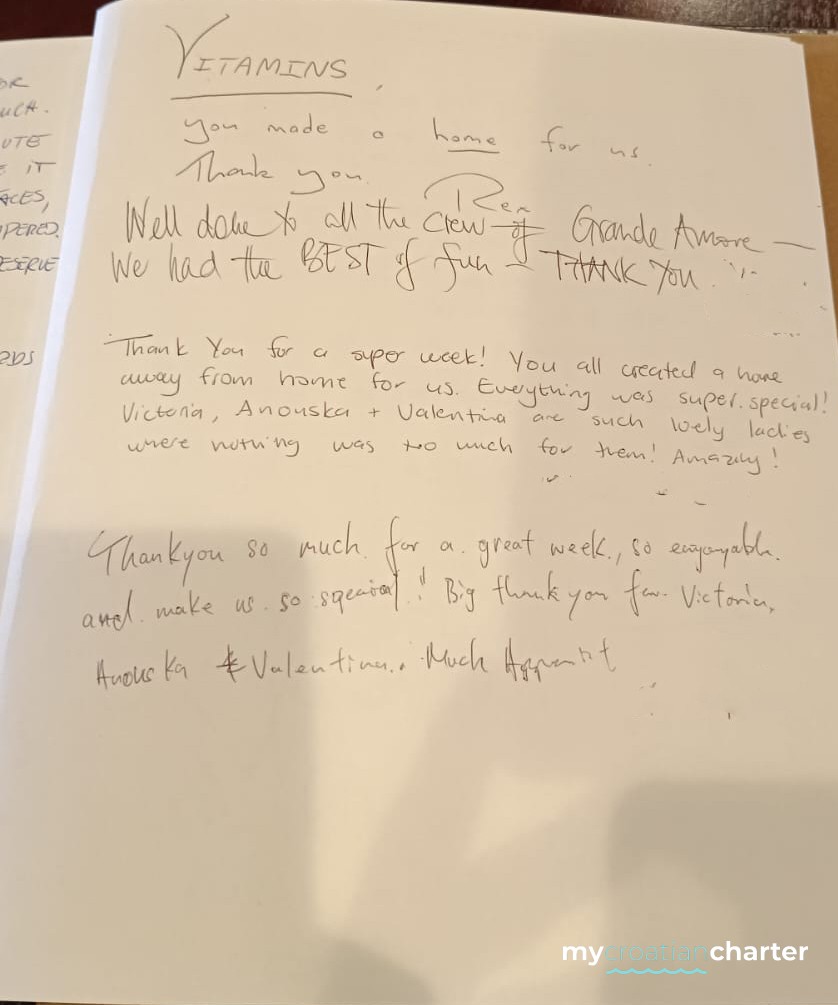 OR
UCA.
UTE
E IT
ACES,
PERED.
ESERVE
RDS
VITAMINS
you made a home for us.
Thank you.
Well done to all the crew of Grande Amore —
We had the BEST of fun – THANK YOU
Thank You for a super week! You all created a home
away from home for us. Everything was super special!
Victoria, Anouska + Valentina are such lovely ladies
where nothing was too much for them! Amazing!
Thankyou so much for a great week, so enjoyable.
and make us so special! Big thank you for Victoria,
Anouska & Valentina. Much
mycroatiancharter